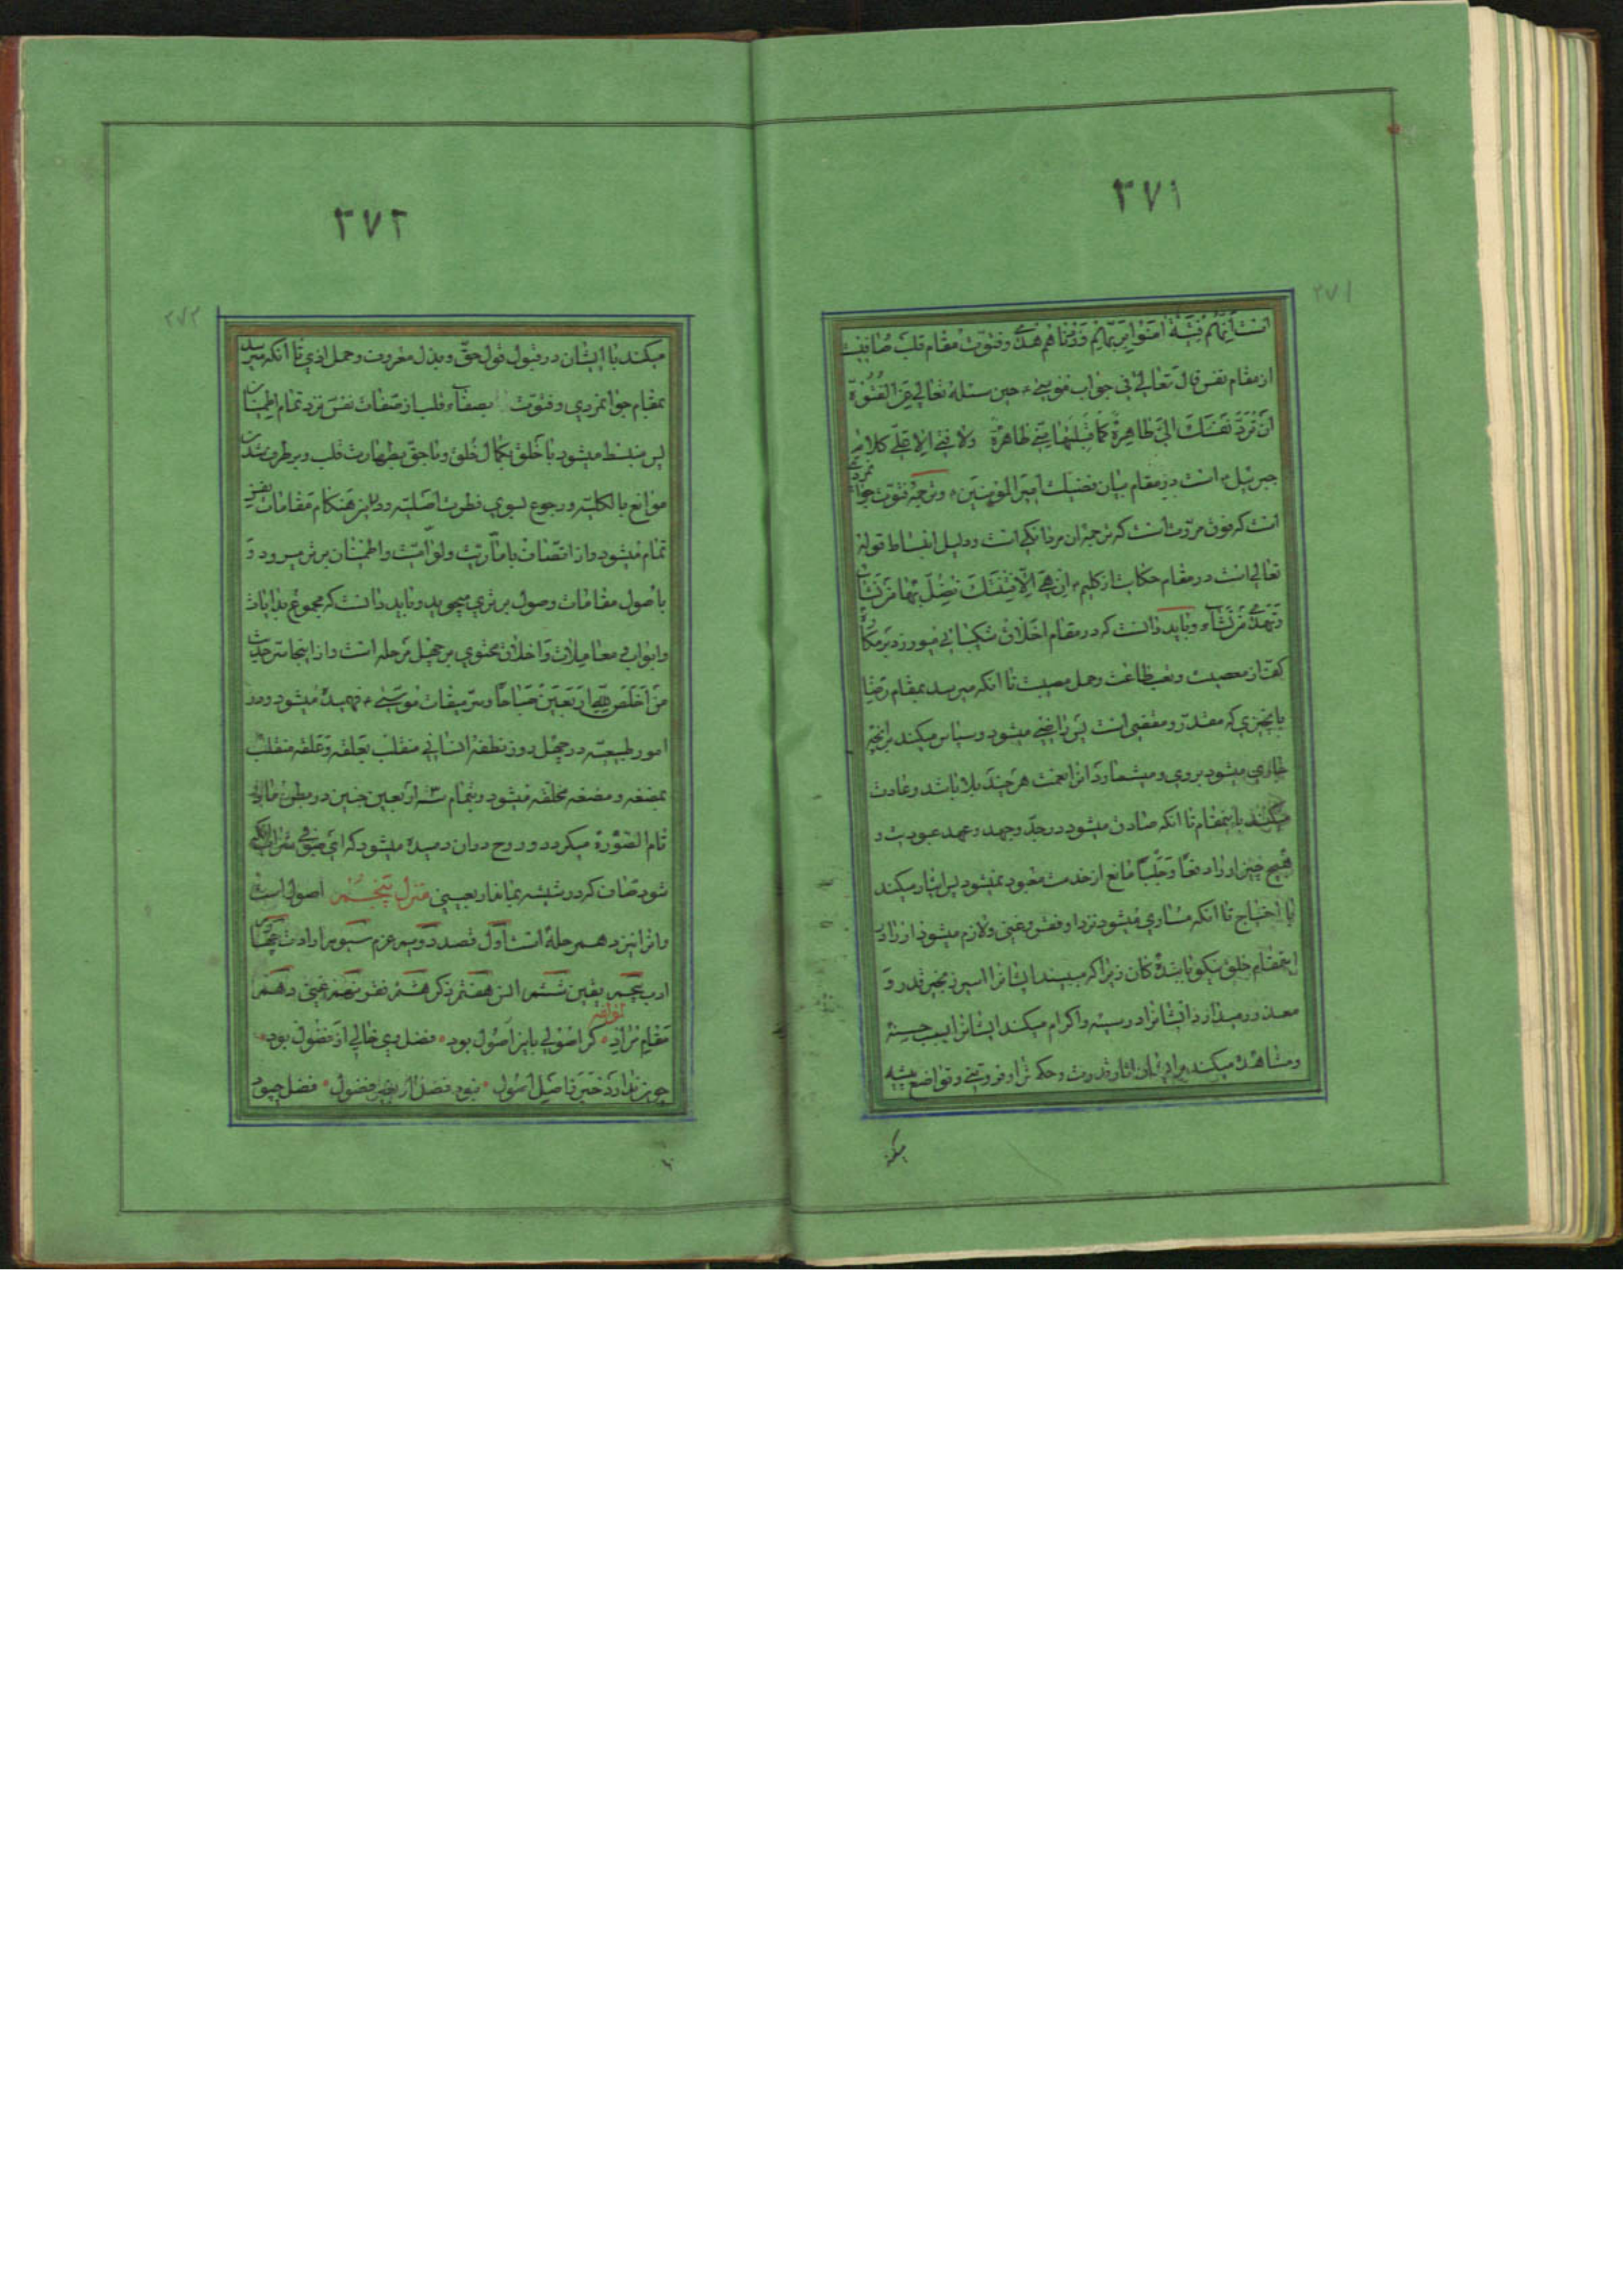 ۲۷۱
۲۷۱
انت انهم فتیة امنوا بربهم وزدناهم هدی و فتوت مقام قلب صافیست
از مقام نفس قال تعالی فی جواب موسی ع حین سئله تعالی عن الفتوة
ان ترد نفسک الی طاهرة کما قبلتها منی طاهرة ولا فتی الا علی کلام
جبرئیل ع است در مقام بیان فضیلت امیر المومنین ع و ترجمه فتوت جوانمردی
است که فوق مروت است که ترجمه آن مردانگی است و دلیل انبساط قوله
تعالی است در مقام حکایت از کلیم ع ان هی الا فتنتک تضل بها من تشاء
وتهدی من تشاء و باید دانست که در مقام اخلاق شکیبائی میورزد بر مکاره
کف از معصیت و تعب طاعت و حمل مصیبت تا انکه میرسد بمقام رضا
بانچیزی که مقدر و مقضی است پس راضی میشود و سپاس میکند برانچه
جاری میشود بروی و میشمارد انرا نعمت هر چند بلا باشد و عادت
میکند باینمقام تا انکه صادق میشود در جد و جهد و عهد عبودیت و
هیچ چیز او را دفعا و جلبا مانع از خدمت معبود نمیشود پس ایثار میکند
با احتیاج تا انکه مساوی میشود نزد او فقر و غنی و لازم میشود از زاد
اینمقام خلق نیکو با بندگان زیرا که میبیند ایشانرا اسیر زنجیر قدر و
معذور میدارد ایشانرا در سیئه و اکرام میکند ایشانرا بسبب حسنه
و مشاهده میکند در ایشان اثار قدرت و حکمت را و فروتنی و تواضع پیشه
میکند
۲۷۲
۲۷۲
میکند با ایشان در قبول قول حق و بذل معروف و حمل اذی تا انکه میرسد
بمقام جوانمردی و فتوت بصفاء قلب از صفات نفس نزد تمام اطمینان
پس منبسط میشود با خلق بکمال خلق و با حق بطهارت قلب و بر طرف شدن
موانع بالکلیه و رجوع بسوی فطرت اصلیه و در این هنکام مقامات نفس
تمام میشود و از اتصاف بامّاریت و لوّامیت و اطمینان برتر میرود و
باصول مقامات وصول برتری میجوید و باید دانست که مجموع بدایات
وابواب و معاملات و اخلاق محتوی بر چهل مرحله است و از اینجا سر حدیث
من اخلص لله اربعین صباحا و سر میقات موسی ع فهمیده میشود و در
امور طبیعیه در چهل روز نطفه انسانی منقلب بعلقه و علقه منقلب
بمضغه و مضغه مخلقه میشود و بتمام سه اربعین جنین در بطن مادر
تام الصورة میکردد و روح دران دمیده میشود که ای صوفی شراب انکه
شود صاف که در شیشه بماند اربعینی منزل پنجم اصول است
و انرا نیز ده مرحله است اول قصد دویم عزم سیوم ارادت چهارم
ادب پنجم یقین ششم انس هفتم ذکر هشتم فقر نهم غنی دهم
لمؤلفه
مقام مراد کر اصولی باین اصول بود فضل وی خالی از فضول بود
چون ندارد خبر فاصل اصول نبود فضل ار بجز فضول فضل چبود